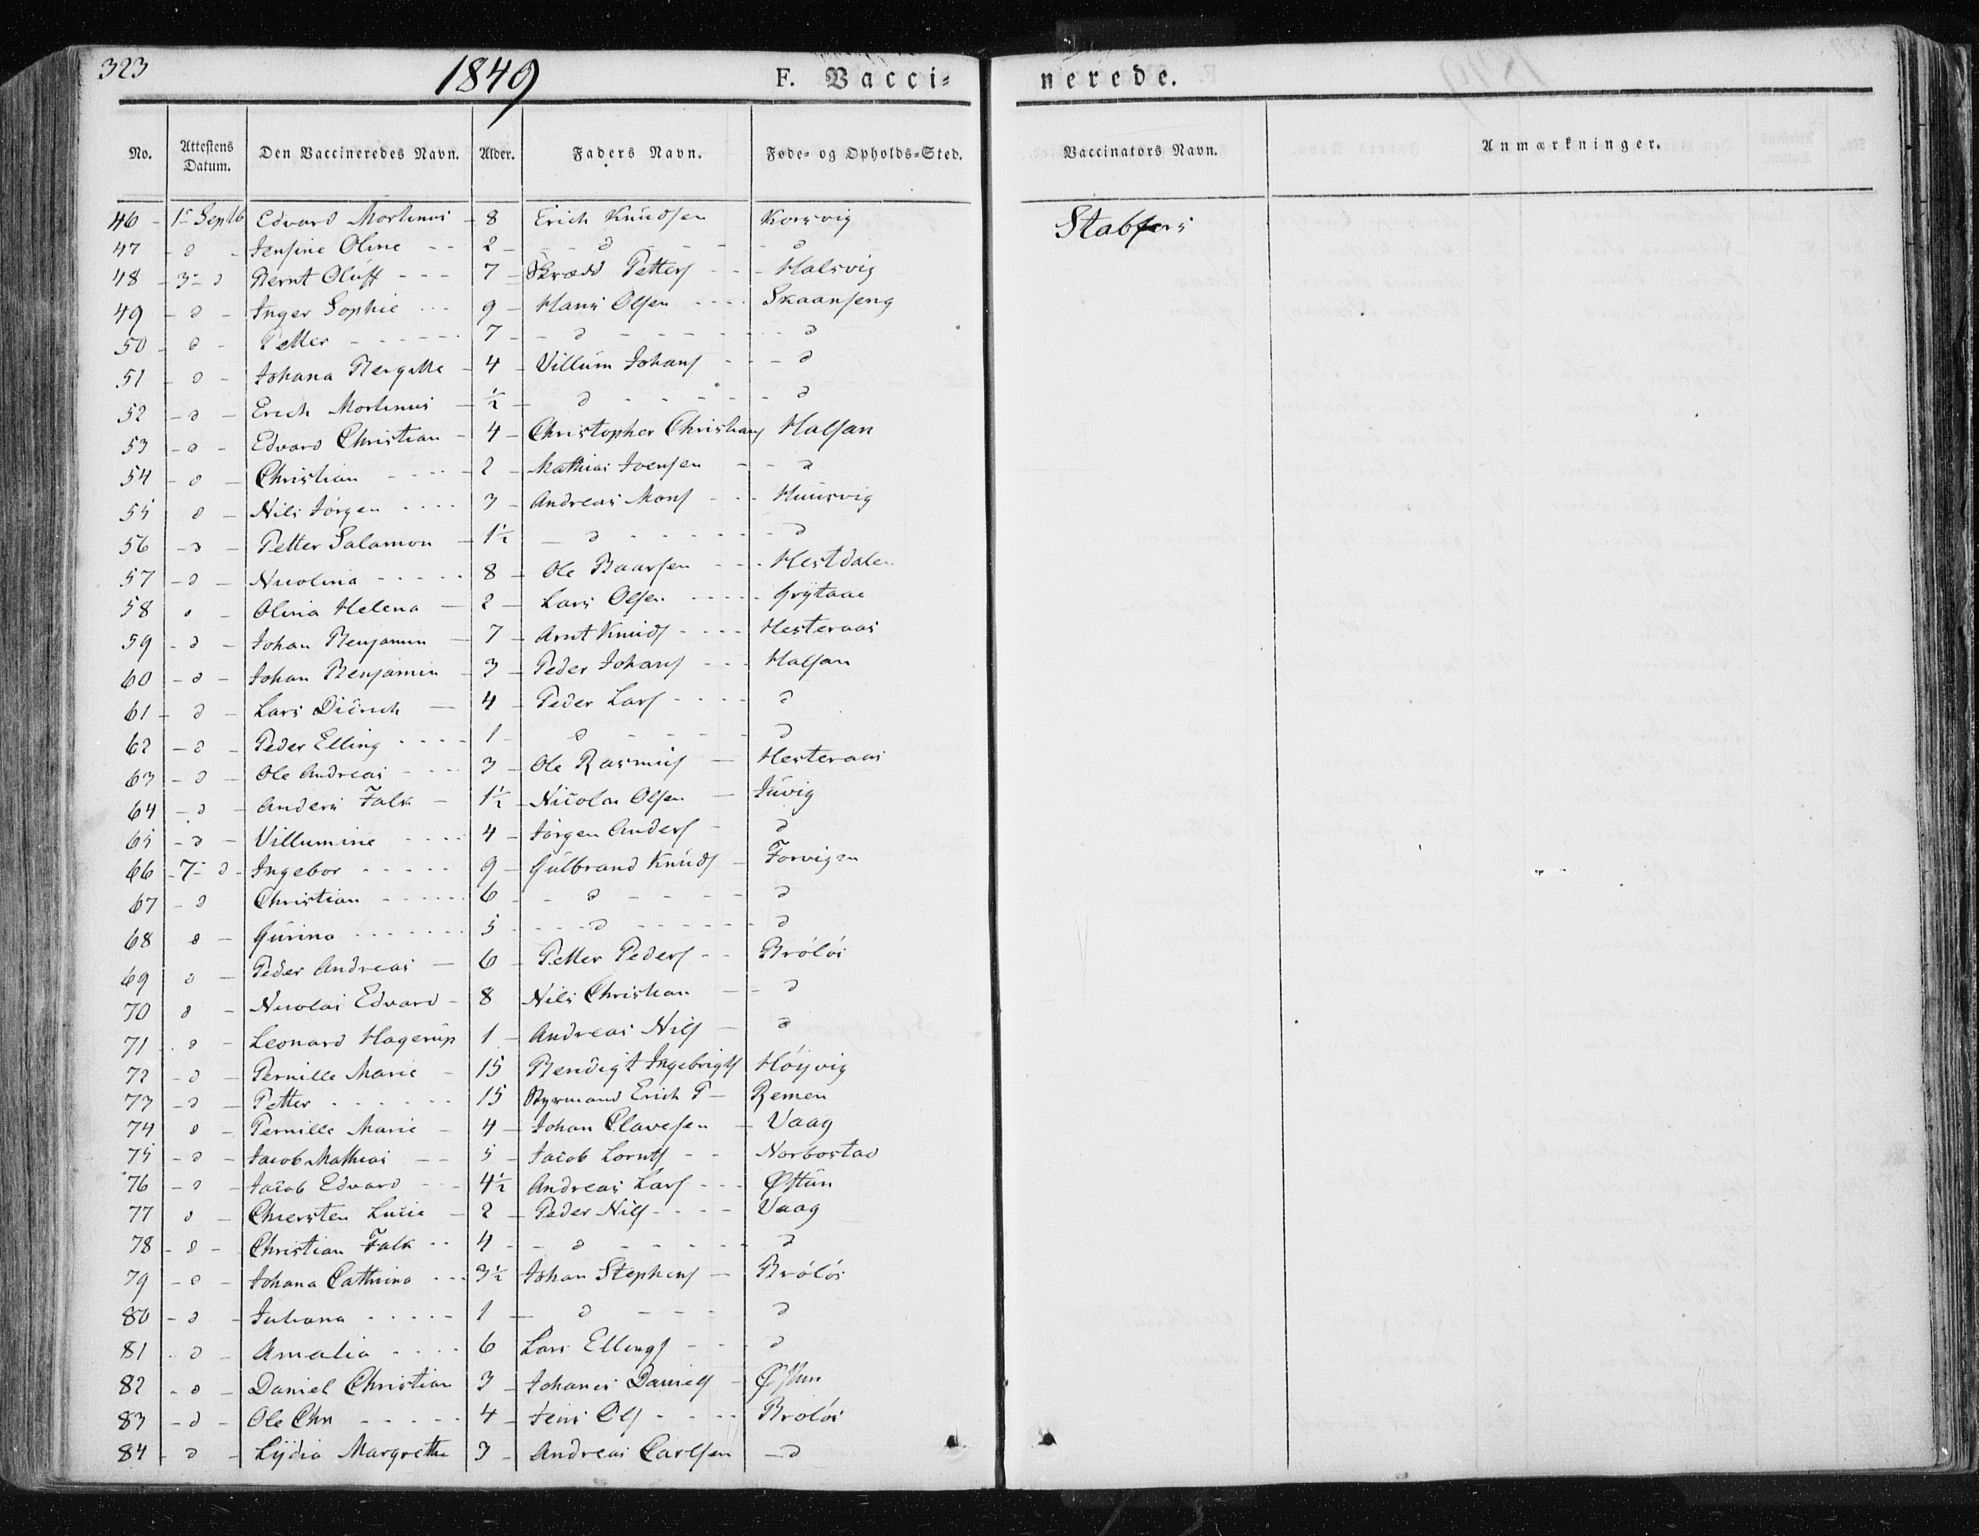 323 1849 F. Vacci= nerede.
No. Attestens Datum. Den Vaccineredes Navn. Alder. Faders Navn. Føde= og Opholds=Sted. Vaccinators Navn. Anmærkninger.
46 - 1ste Septb Edvard Mortinus - 8 Erich Knudsen Korsvig Stabfors
47 - d - Jensine Oline - - 2 - - d - - - d
48 - 3- d Bernt Oluff - - - 7 - Skrædd Petters - - - Halsvig
49 - d - Inger Sophie - - - 9 - Hans Olsen - - - Skaanseng
50 - d - Petter - - - - 7 - - d - - - d
51 - d - Johana Bergitte - 4 - Villum Johans - - - d
52 - d - Erich Mortinus - ½ - d - - - d
53 - d - Edvard Christian - 4 - Christopher Christians Halsan
54 - d - Christian - - - 2 - Mathias Joensen - - d
55 d - Nils Jørgen - - - 3 - Andreas Mons - - - Huusvig
56 - d - Petter Salamon - 1½ - d - - - d
57 - d - Nicolina - - - 8 - Ole Baarsen - - - Hestdalen
58 d - Olina Helena - 2 - Lars Olsen - - - Grytaae
59 - d - Johan Benjamin - 7 - Arnt Knuds - - - Hesteraas
60 - d - Johan Benjamin - 3 - Peder Johans - - - Halsan
61 - d - Lars Didrich - 4 - Peder Lars - - - d
62 - d - Peder Elling - - - 1 - d - - - d
63 - d - Ole Andreas - - - 3 - Ole Rasmus - Hesteraas
64 - d - Anders Falk - 1½ - Nicolai Olsen - Juvig
65 - d - Villumine - - - 4 - Jørgen Anders - d
66 - 7- d - Ingebor - - - 9 - Gulbrand Knuds - Forvigen
67 - d Christian - - - 6 - d - - - d
68 d - Gurina - - - 5 - - - d - - - d
69 d - Peder Andreas - 6 - Petter Peders - - Brøløs
70 d - Nicolai Edvard - 8 Nils Christian - - d
71 . d - Leonard Hagerup 1 - Andreas Nils - d
72 - d - Pernille Marie - 15 Bendigt Ingebrigts Høijvig
73 - d - Petter - - - 15 Byrmand Erich P - Remen
74 d - Pernille Marie - 4 - Johan Olavesen - Vaag
75 - d - Jacob Mathias - - 5 - Jacob Lornts - - Norbostad
76 - d - Jacob Edvard - - 4½ Andreas Lars - - - Østun
77 d - Chiersten Lucie - 2 - Peder Nils - - - Vaag
78 - d - Christian Falk - - 4 - - d - - - d
79 - d - Johana Cathrina - - - 3½ Johan Stephens - Brøløs
80 - d - Juliana - - - 1 - d - - - d
81 . d - Amalia - - - 6 Lars Ellings - - - d
82 - d - Daniel Christian 3 - Johanes Daniels - Østun
83 - d - Ole Chr - - - 4 - Jens Ols - - - Brøløs
84 - d - Lydia Margrethe 3 - Andreas Carlsen - d